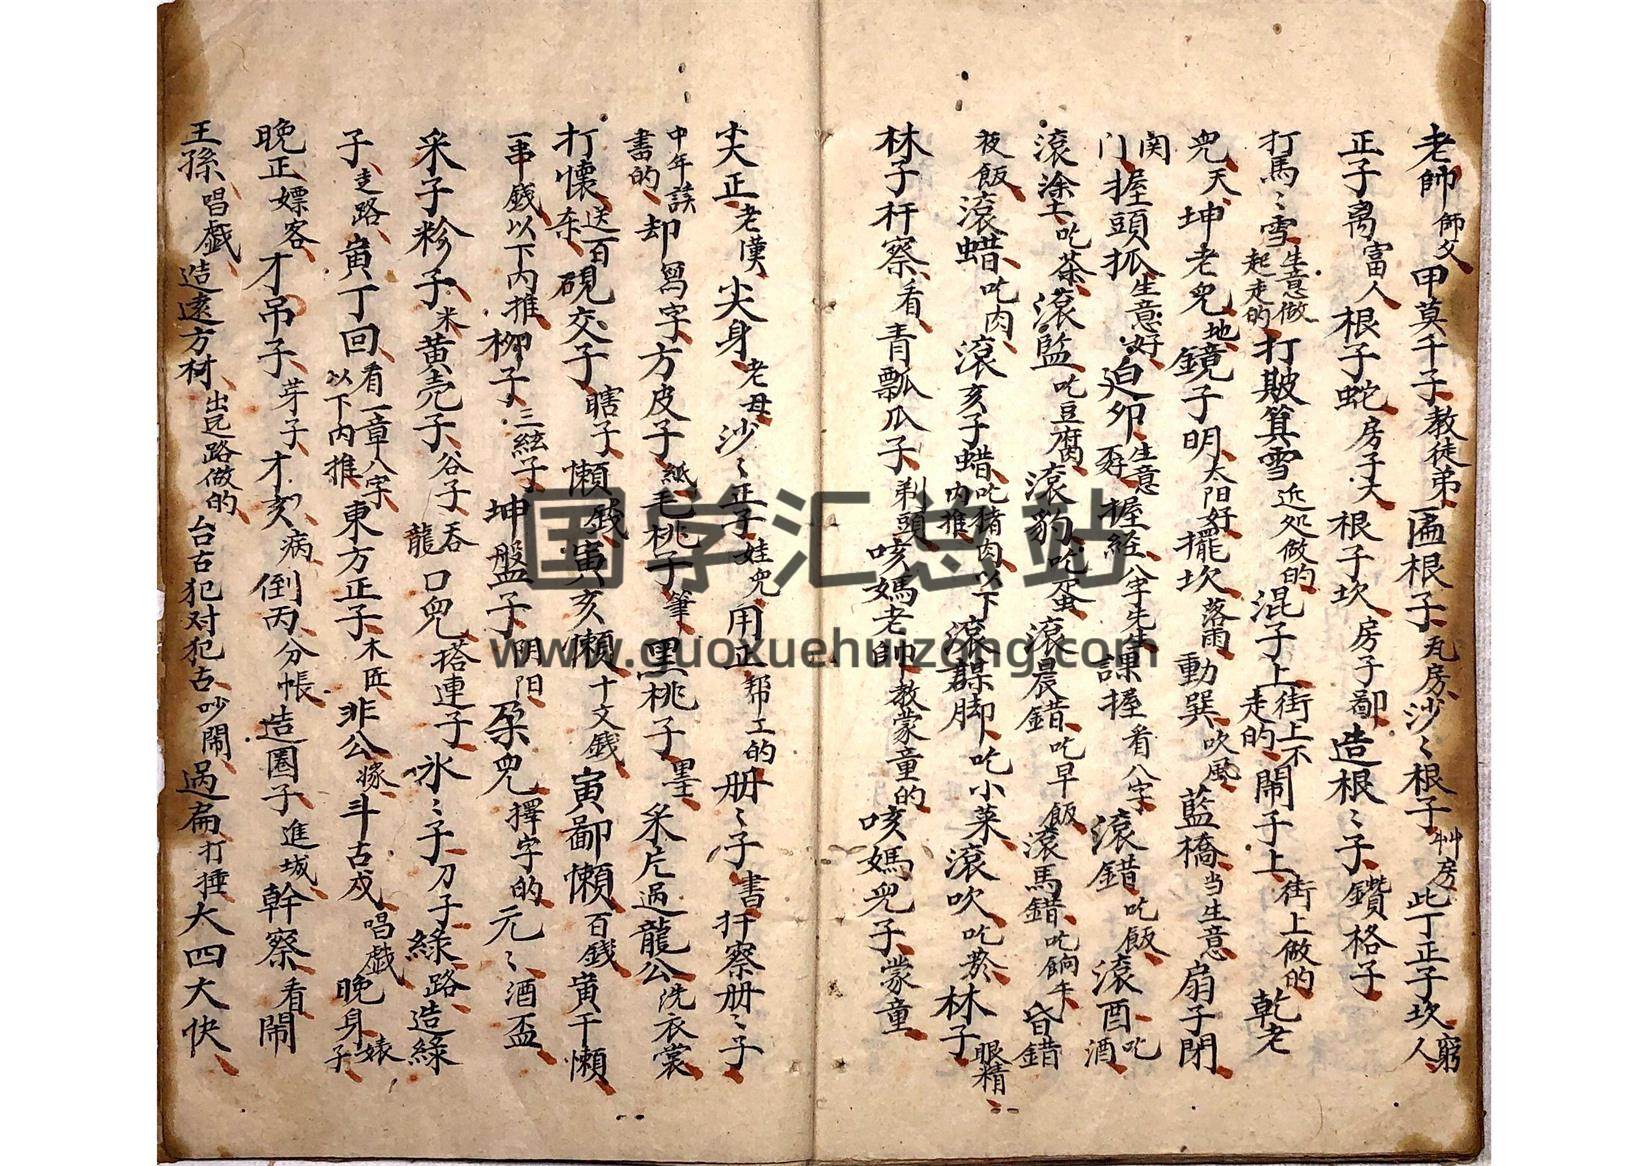 老師師父甲莫千子教徒弟一匾根子瓦房沙〻根子艸房此丁正子坎窮人
正子离富人根子蛇房子大根子坎房子鄙造根〻子鑽格子
打馬〻雪生意做起走的打皷箕雪近処做的混子上街上不走的鬧子上街上做的乾老
兒天坤老兒地鏡子明太阳好擺坎落雨動巽吹風藍橋当生意扇子閉
関门握頭抓生意好迫卯生意孬握经八字先生課握看八字滾錯吃飯滾酉吃酒
滾涂土吃茶滾監吃豆腐滾豹吃蛋滾晨錯吃早飯滾馬錯吃餉午昏錯
夜飯滾蜡吃肉滾亥子蜡吃猪肉以下内推滾谋却月吃小菜滾吹吃菸林子眼精
林子杆察看青瓢瓜子剃頭咳媽老師教蒙童的咳媽兒子蒙童
尖正老漢尖身老母沙〻正子娃兒用正帮工的册〻子書扦察册〻子
中年談書的却寫字方皮子紙毛桃子筆黑桃子墨采片過龍公洗衣裳
打懷送百杂硯交子瞎子懶錢寅亥懶十文錢寅鄙懶百錢寅干懶
一串錢以下内推柳子三絃子坤盤子阴阳朶兒擇字的元〻酒盃
采子粉子米黄壳子谷子吞龍口兒褡連子氷〻子刀子緑路造緑
子走路寅丁回看一章八字以下内推東方正子木匠非公嫁斗古戍唱戲晚身婊子
晚正嫖客才吊子芽子才亥病倒丙分帳造圈子進城幹察看鬧
王孫唱戲造遠方柯出远路做的台古犯对犯古吵鬧過扁打捶大四大快
国学汇总站
www.guoxuehuizong.com